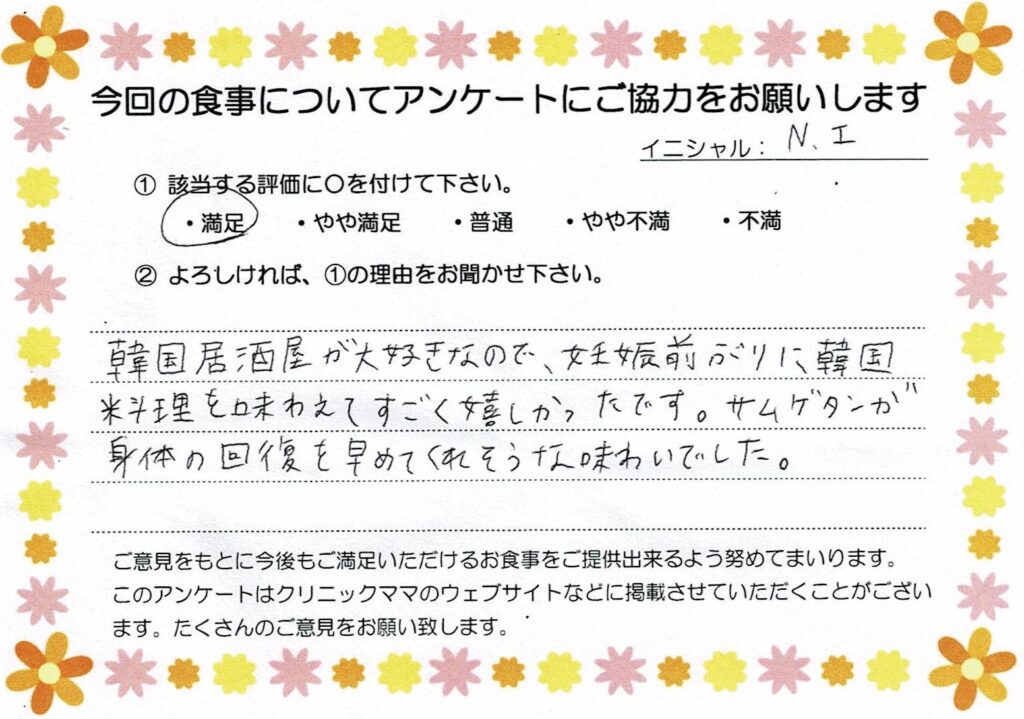 今回の食事についてアンケートにご協力をお願いします
イニシャル： N、I
① 該当する評価に○を付けて下さい。
・満足 ・やや満足 ・普通 ・やや不満 ・不満
② よろしければ、①の理由をお聞かせ下さい。
韓国居酒屋が大好きなので、妊娠前ぶりに、韓国
料理を味わえてすごく嬉しかったです。サムゲタンが
身体の回復を早めてくれそうな味わいでした。
ご意見をもとに今後もご満足いただけるお食事をご提供出来るよう努めてまいります。
このアンケートはクリニックママのウェブサイトなどに掲載させていただくことがござい
ます。たくさんのご意見をお願い致します。